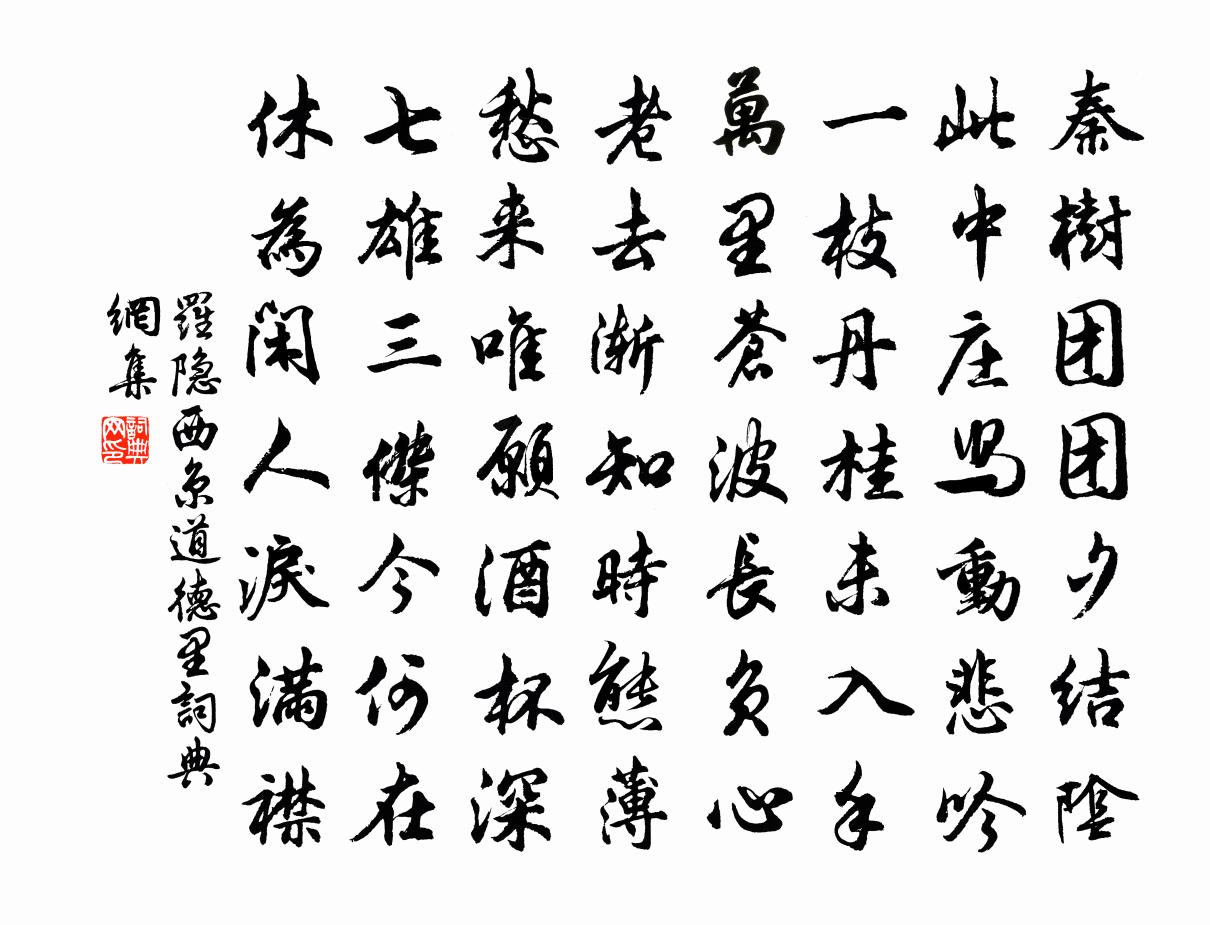 秦樹团团夕结陰
此中庄舄動悲吟
一枝丹桂未入手
萬里蒼波長负心
老去渐知時態薄
愁来唯願酒杯深
七雄三傑今何在
休為闲人淚满襟
羅隐西京道德里詞典
網集
詞典
网印